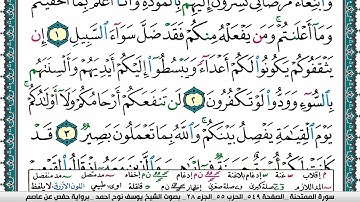 وَابْتِغَاءَ مَرْضَاتِي تُسِرُّونَ إِلَيْهِم بِالْمَوَدَّةِ وَأَنَا أَعْلَمُ بِمَا أَخْفَيْتُمْ
وَمَا أَعْلَنتُمْ وَمَن يَفْعَلْهُ مِنكُمْ فَقَدْ ضَلَّ سَوَاءَ السَّبِيلِ ١ إِن
يَثْقَفُوكُمْ يَكُونُوا لَكُمْ أَعْدَاءً وَيَبْسُطُوا إِلَيْكُمْ أَيْدِيَهُمْ وَأَلْسِنَتَهُم
بِالسُّوءِ وَوَدُّوا لَوْ تَكْفُرُونَ ٢ لَن تَنفَعَكُمْ أَرْحَامُكُمْ وَلَا أَوْلَادُكُمْ
يَوْمَ الْقِيَامَةِ يَفْصِلُ بَيْنَكُمْ وَاللَّهُ بِمَا تَعْمَلُونَ بَصِيرٌ ٣ قَدْ
سورة الممتحنة الصفحة ٥٤٩ الحزب ٥٥ الجزء ٢٨ بصوت الشيخ يوسف نوح احمد برواية حفص عن عاصم